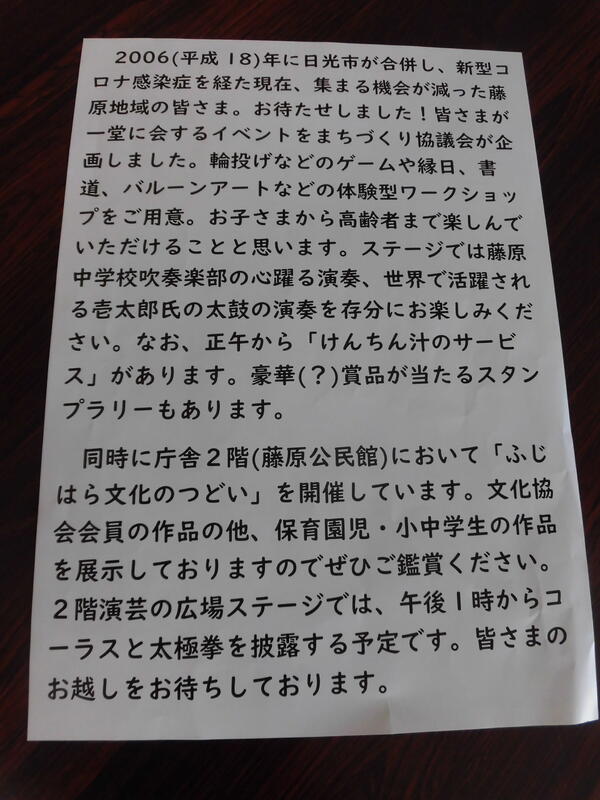 2006(平成18)年に日光市が合併し、新型コ
ロナ感染症を経た現在、集まる機会が減った藤
原地域の皆さま。お待たせしました！皆さまが
一堂に会するイベントをまちづくり協議会が企
画しました。輪投げなどのゲームや縁日、書
道、バルーンアートなどの体験型ワークショッ
プをご用意。お子さまから高齢者まで楽しんで
いただけることと思います。ステージでは藤原
中学校吹奏楽部の心躍る演奏、世界で活躍され
る壱太郎氏の太鼓の演奏を存分にお楽しみくだ
さい。なお、正午から「けんちん汁のサービ
ス」があります。豪華(？)賞品が当たるスタン
プラリーもあります。
同時に庁舎２階(藤原公民館)において「ふじ
はら文化のつどい」を開催しています。文化協
会会員の作品の他、保育園児・小中学生の作品
を展示しておりますのでぜひご鑑賞ください。
２階演芸の広場ステージでは、午後１時からコ
ーラスと太極拳を披露する予定です。皆さまの
お越しをお待ちしております。